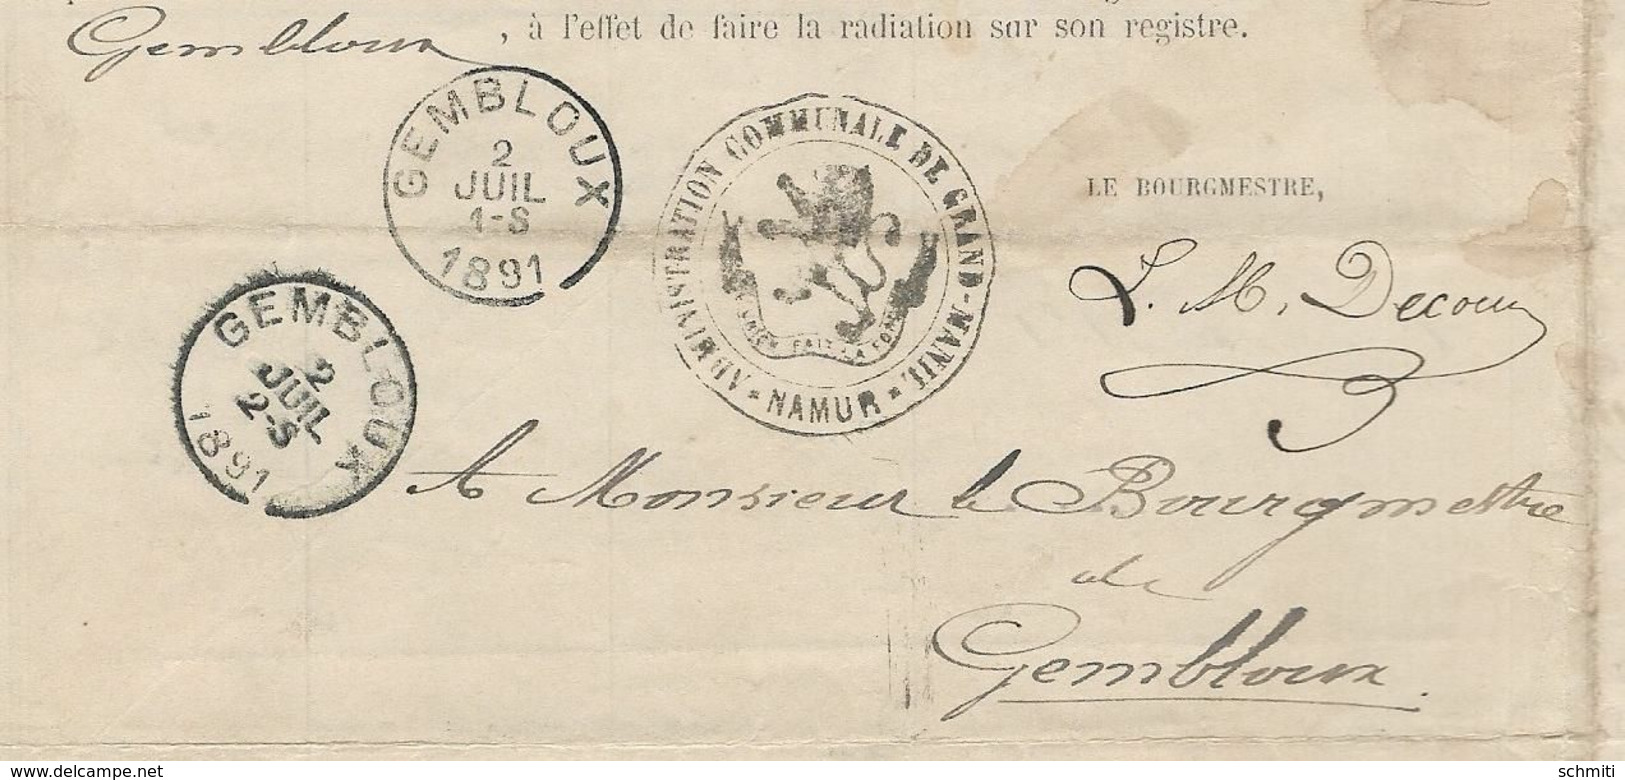 Gembloux, à l'effet de faire la radiation sur son registre.
GEMBLOUX
2
JUIL
1-S
1891
ADMINISTRATION COMMUNALE DE GRAND-MANIL
* NAMUR *
L'UNION FAIT LA FORCE
LE BOURGMESTRE,
L. M. Decoux
GEMBLOUX
2
JUIL
2-S
1891
A Monsieur le Bourgmestre
de
Gembloux.
www.delcampe.net
schmiti